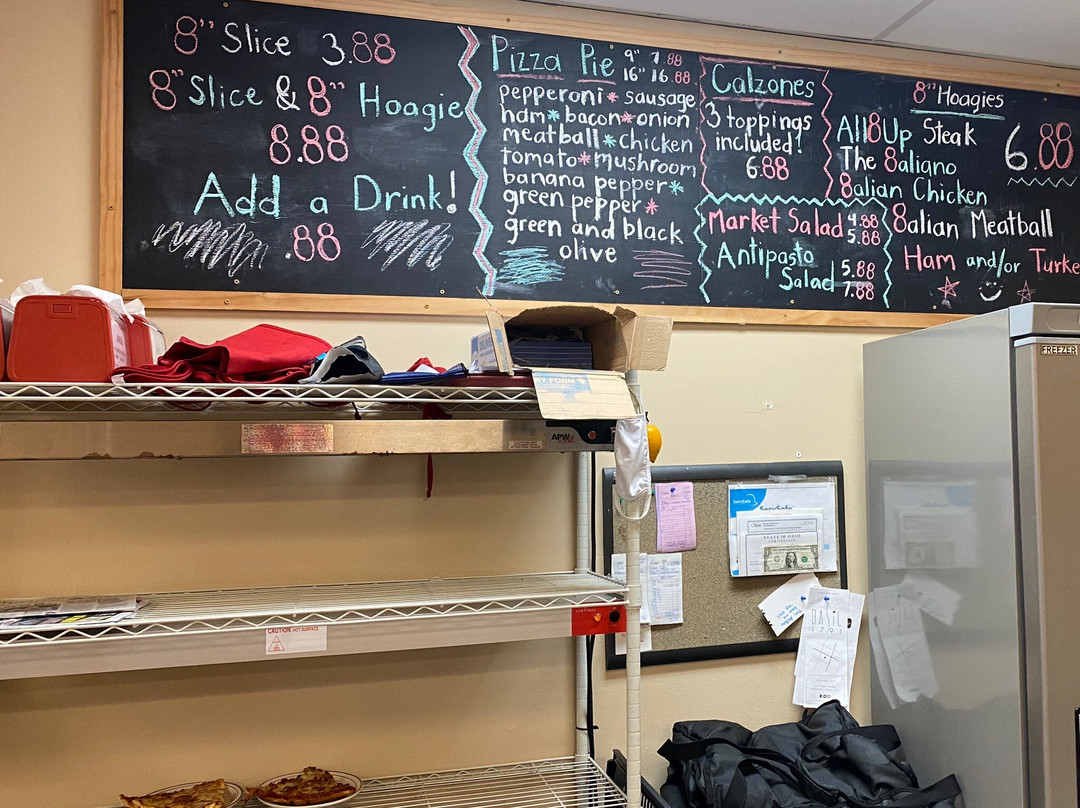 8" Slice 3.88
8" Slice & 8" Hoagie
8.88
Add a Drink!
.88
Pizza Pie 9" 7.88
16" 16.88
pepperoni * sausage
ham * bacon * onion
meatball * chicken
tomato * mushroom
banana pepper *
green pepper *
green and black
olive
Calzones
3 toppings
included!
6.88
Market Salad 4.88
5.88
Antipasto
Salad 5.88
7.88
8" Hoagies
All8Up Steak 6.88
The 8aliano
8alian Chicken
8alian Meatball
Ham and/or Turke
FREEZER
APW
CAUTION HOT SURFACE
STATE OF OHIO
BASIL
1791